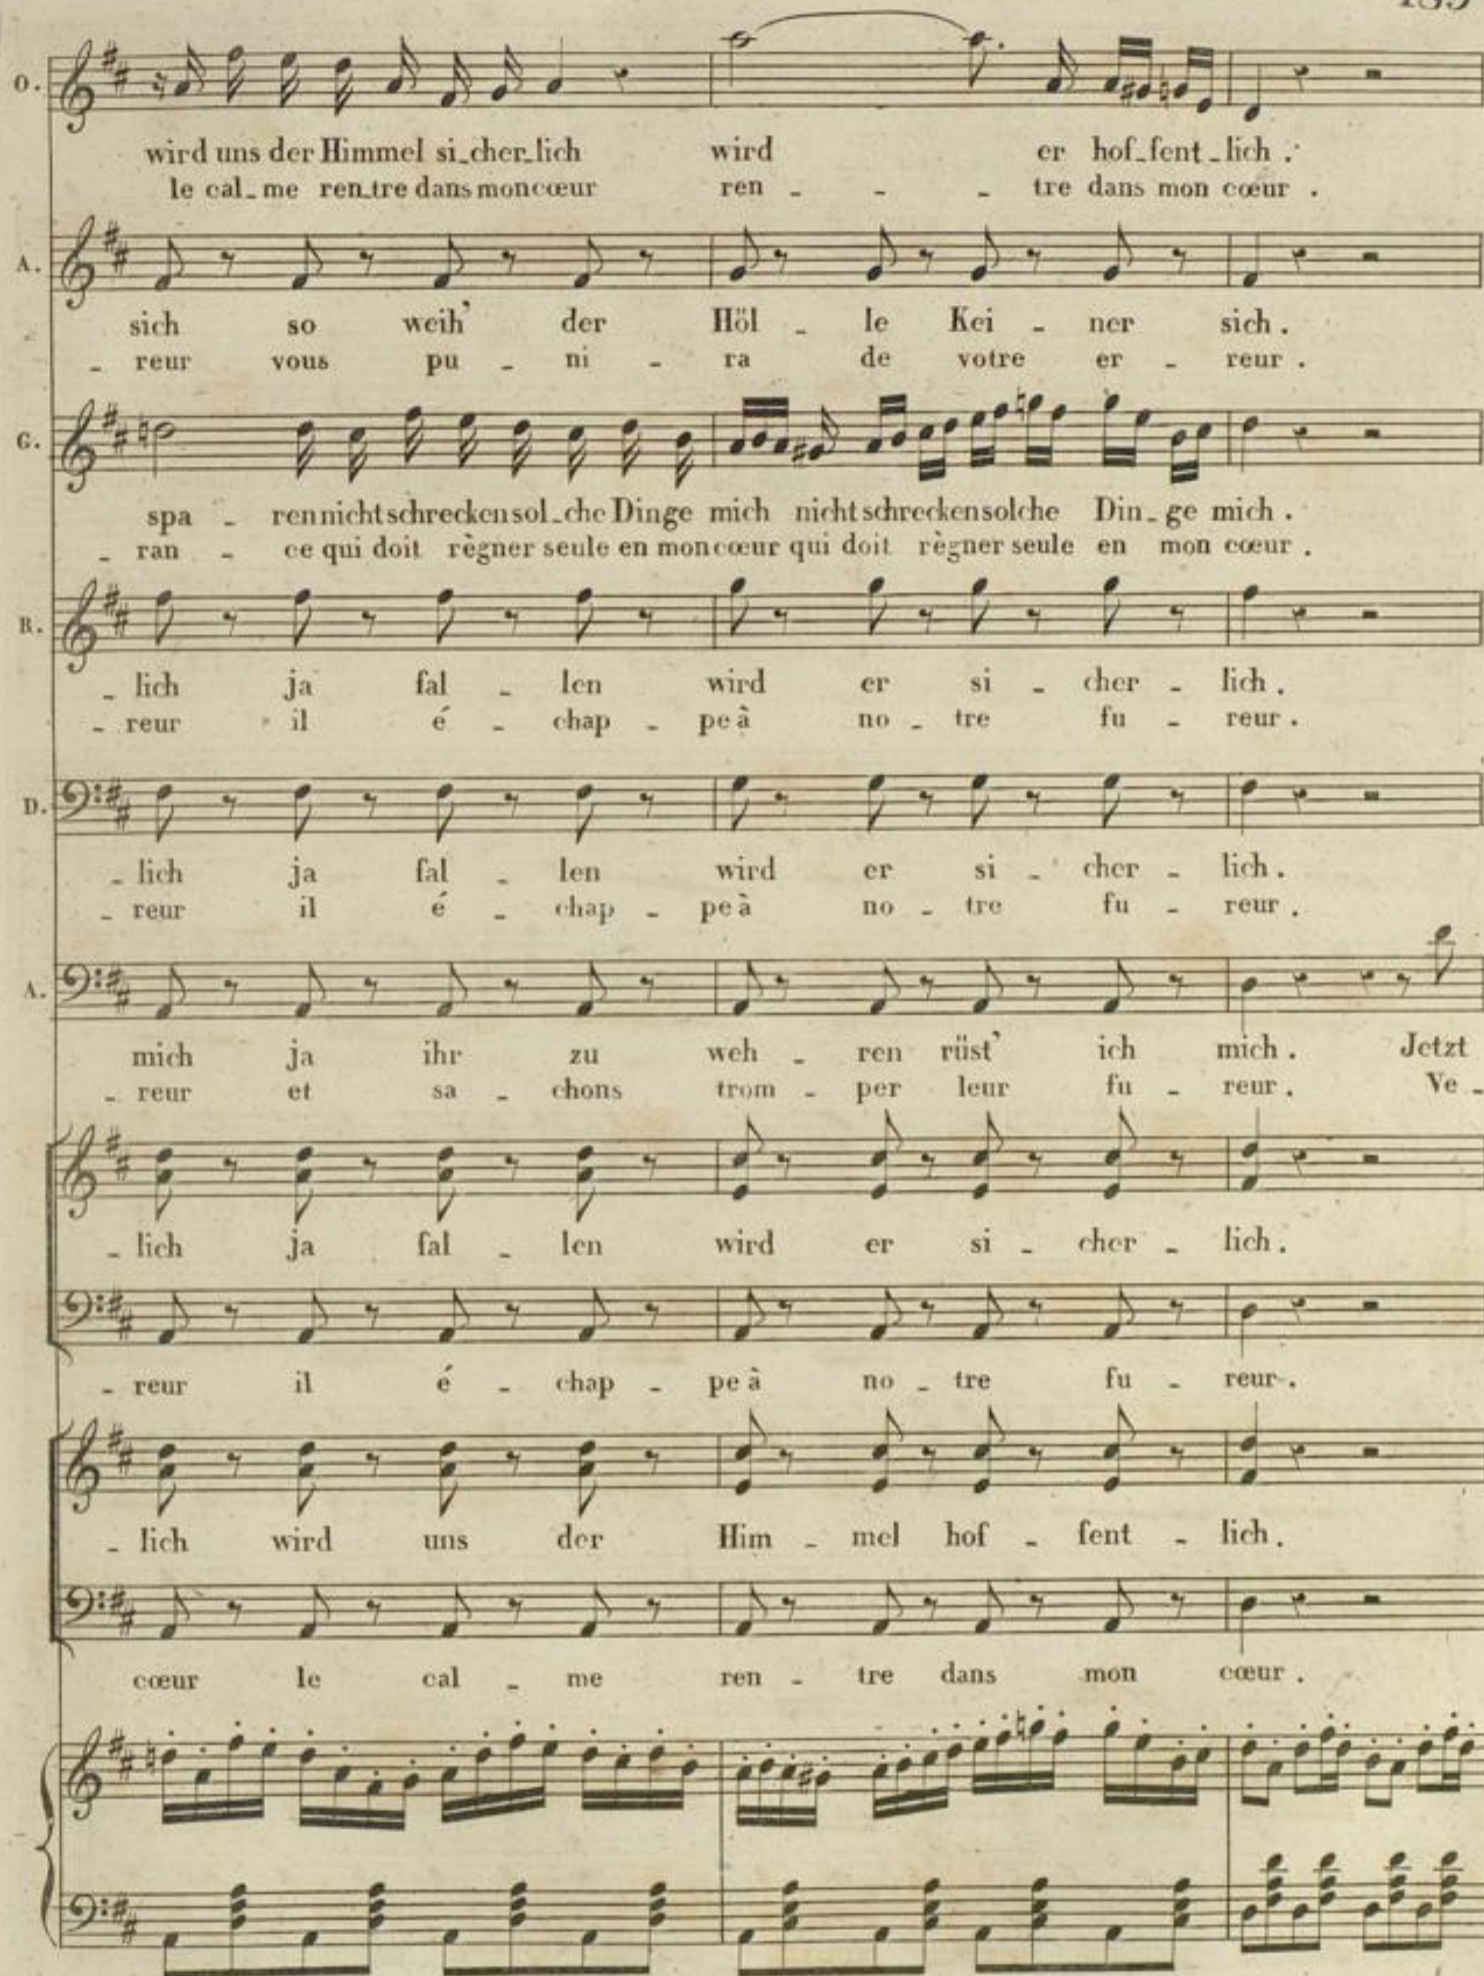 O.
wird uns der Himmel si_cher_lich wird er hof_fent_lich.
le cal_me ren_tre dans mon cœur ren - - - tre dans mon cœur.
A.
sich so weih' der Höl - le Kei - ner sich.
- reur vous pu - ni - ra de votre er - reur.
G.
spa - ren nicht schrecken sol_che Dinge mich nicht schrecken solche Din_ge mich.
- ran - ce qui doit règner seule en mon cœur qui doit règner seule en mon cœur.
R.
- lich ja fal - len wird er si - cher - lich.
- reur il é - chap - pe à no - tre fu - reur.
D.
- lich ja fal - len wird er si - cher - lich.
- reur il é - chap - pe à no - tre fu - reur.
A.
mich ja ihr zu weh - ren rüst' ich mich. Jetzt
- reur et sa - chons trom - per leur fu - reur. Ve -
- lich ja fal - len wird er si - cher - lich.
- reur il é - chap - pe à no - tre fu - reur.
- lich wird uns der Him - mel hof - fent - lich.
cœur le cal - me ren - tre dans mon cœur.